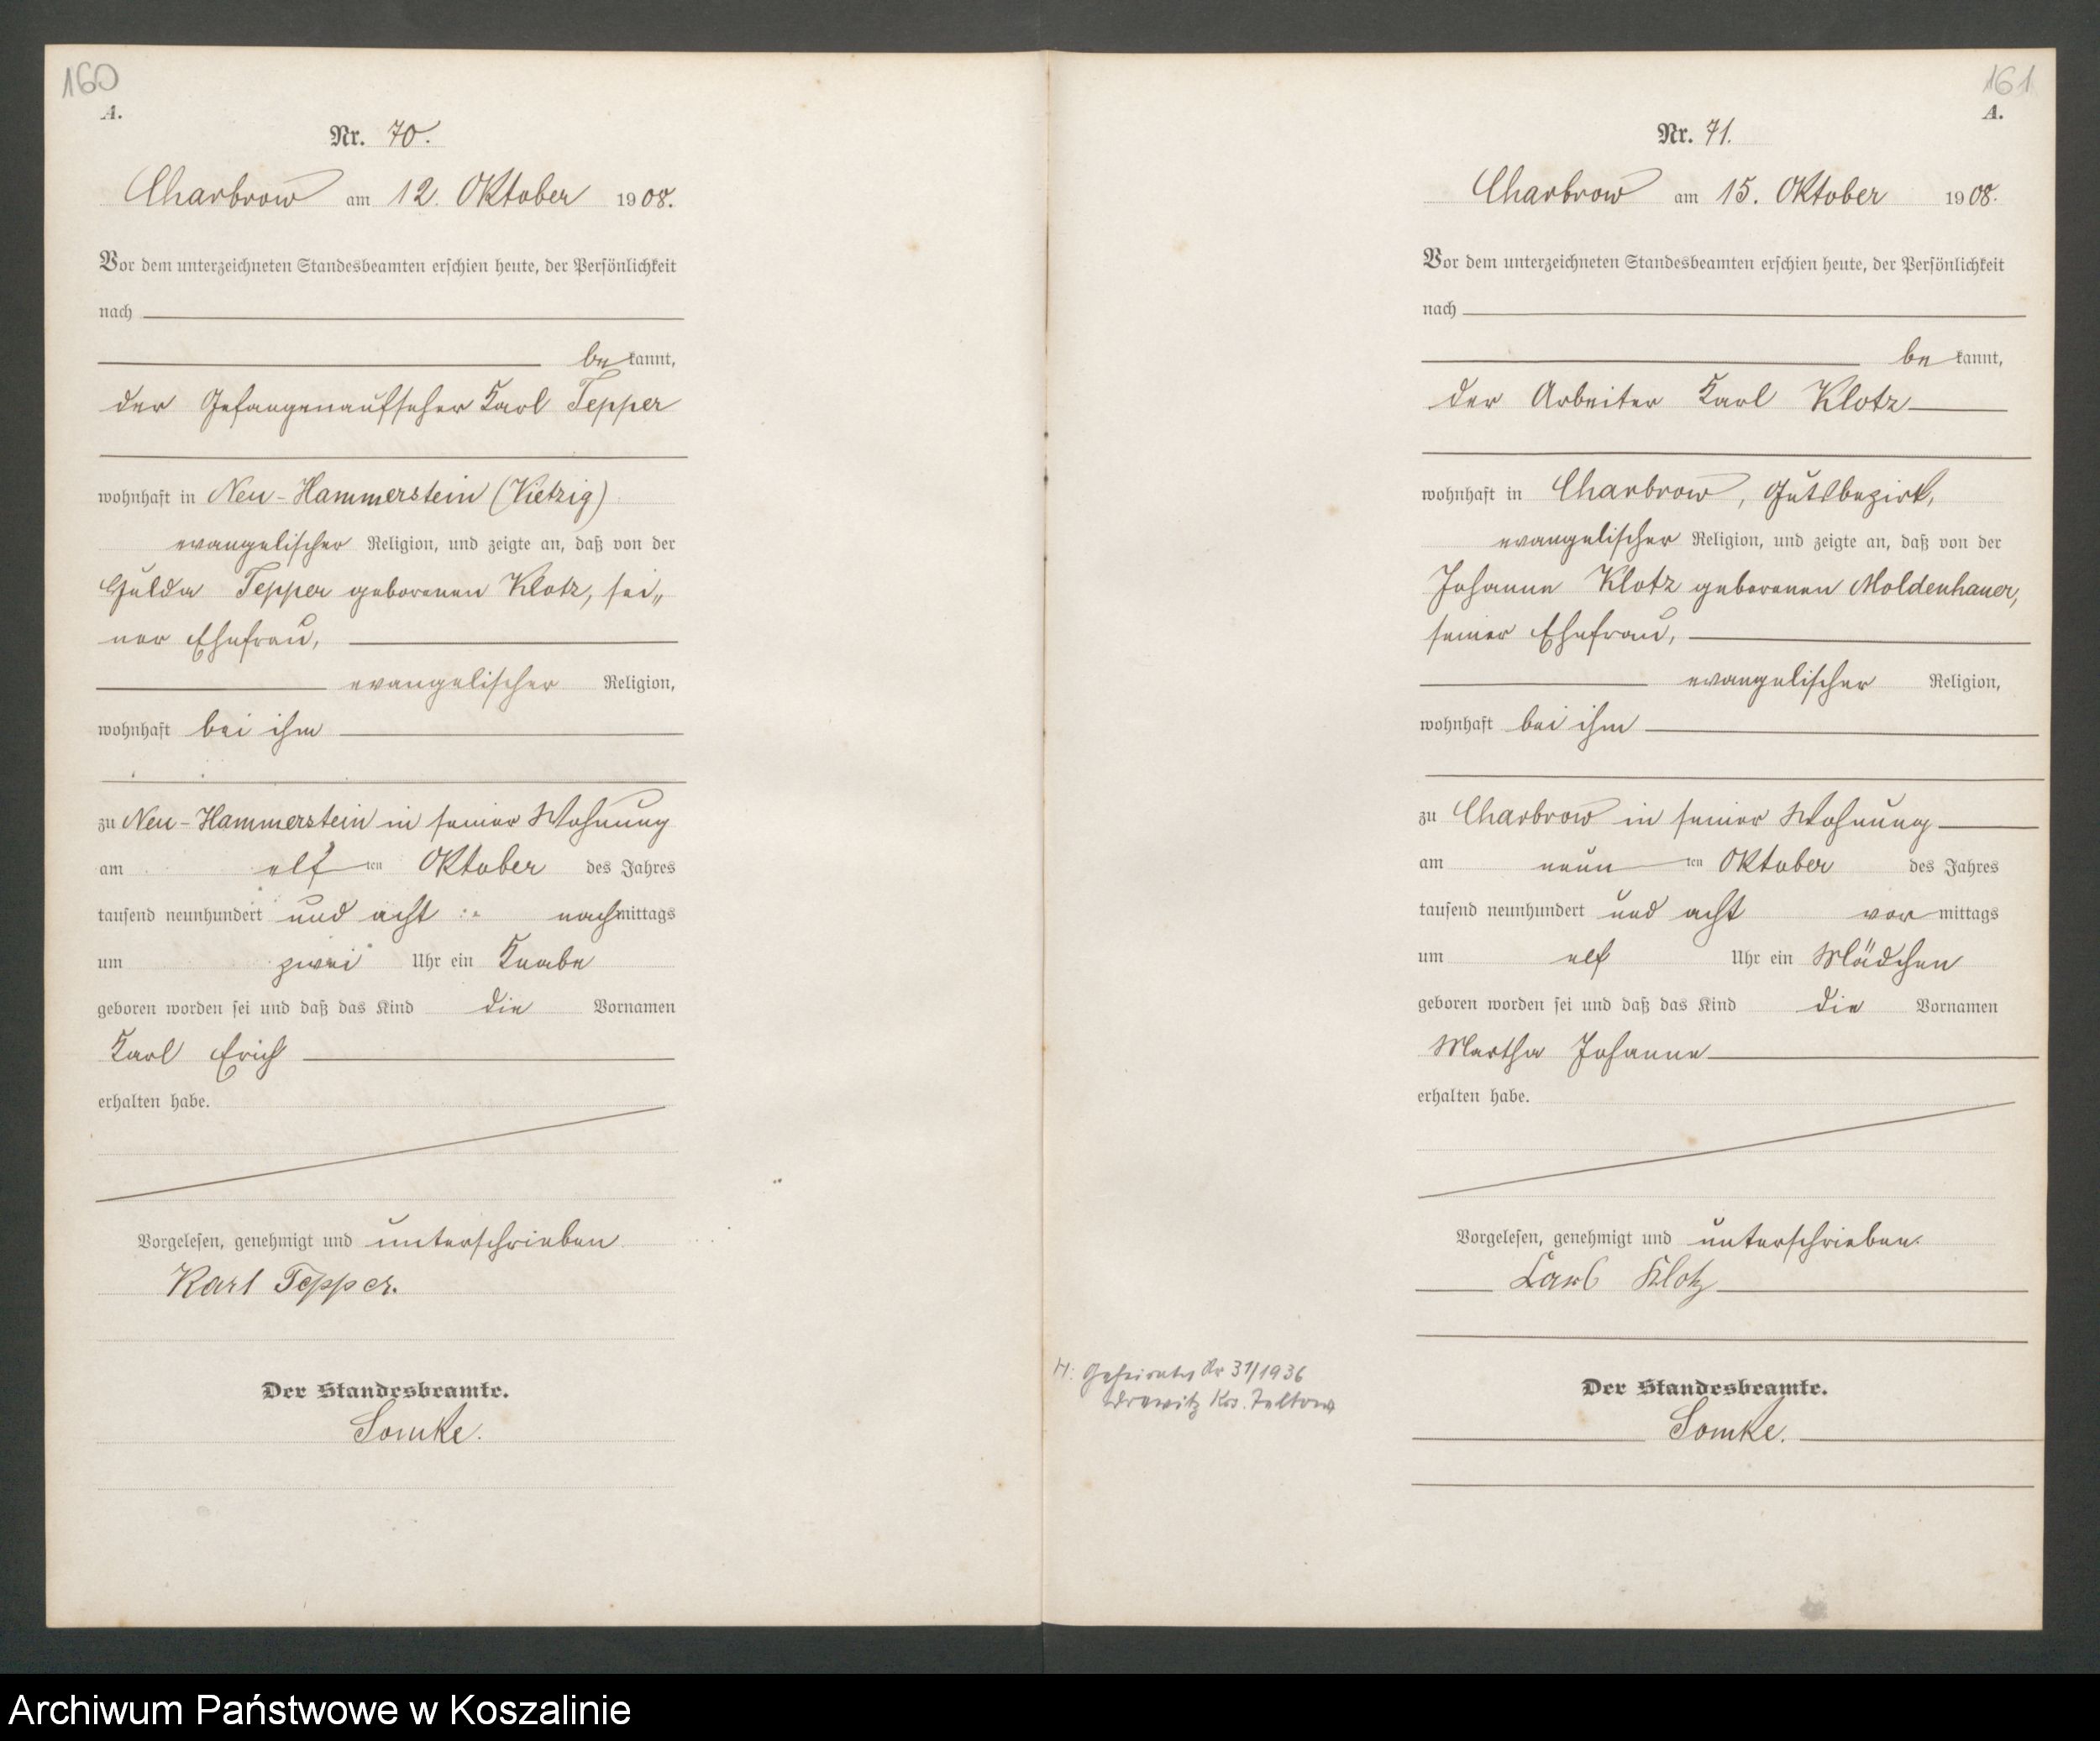 160
A.
Nr. 70.
Charbrow am 12. Oktober 1908.
Vor dem unterzeichneten Standesbeamten erschien heute, der Persönlichkeit
nach
be kannt,
der Gefangenaufseher Karl Tepper
wohnhaft in Neu-Hammerstein (Vietzig)
evangelischer Religion, und zeigte an, daß von der
Hulda Tepper geborenen Klotz, sei„
ner Ehefrau,
evangelischer Religion,
wohnhaft bei ihm
zu Neu-Hammerstein in seiner Wohnung
am elf ten Oktober des Jahres
tausend neunhundert und acht nachmittags
um zwei Uhr ein Knabe
geboren worden sei und daß das Kind die Vornamen
Karl Erich
erhalten habe.
Vorgelesen, genehmigt und unterschrieben
Karl Tepper.
Der Standesbeamte.
Somke.
161
A.
Nr. 71.
Charbrow am 15. Oktober 1908.
Vor dem unterzeichneten Standesbeamten erschien heute, der Persönlichkeit
nach
be kannt,
der Arbeiter Karl Klotz
wohnhaft in Charbrow, Gutsbezirk,
evangelischer Religion, und zeigte an, daß von der
Johanne Klotz geborenen Moldenhauer,
seiner Ehefrau,
evangelischer Religion,
wohnhaft bei ihm
zu Charbrow in seiner Wohnung
am neun ten Oktober des Jahres
tausend neunhundert und acht vor mittags
um elf Uhr ein Mädchen
geboren worden sei und daß das Kind die Vornamen
Martha Johanne
erhalten habe.
Vorgelesen, genehmigt und unterschrieben.
Karl Klotz
H: Geheiratet Nr 31/1936
Drewitz Krs. Teltow
Der Standesbeamte.
Somke.
Archiwum Państwowe w Koszalinie